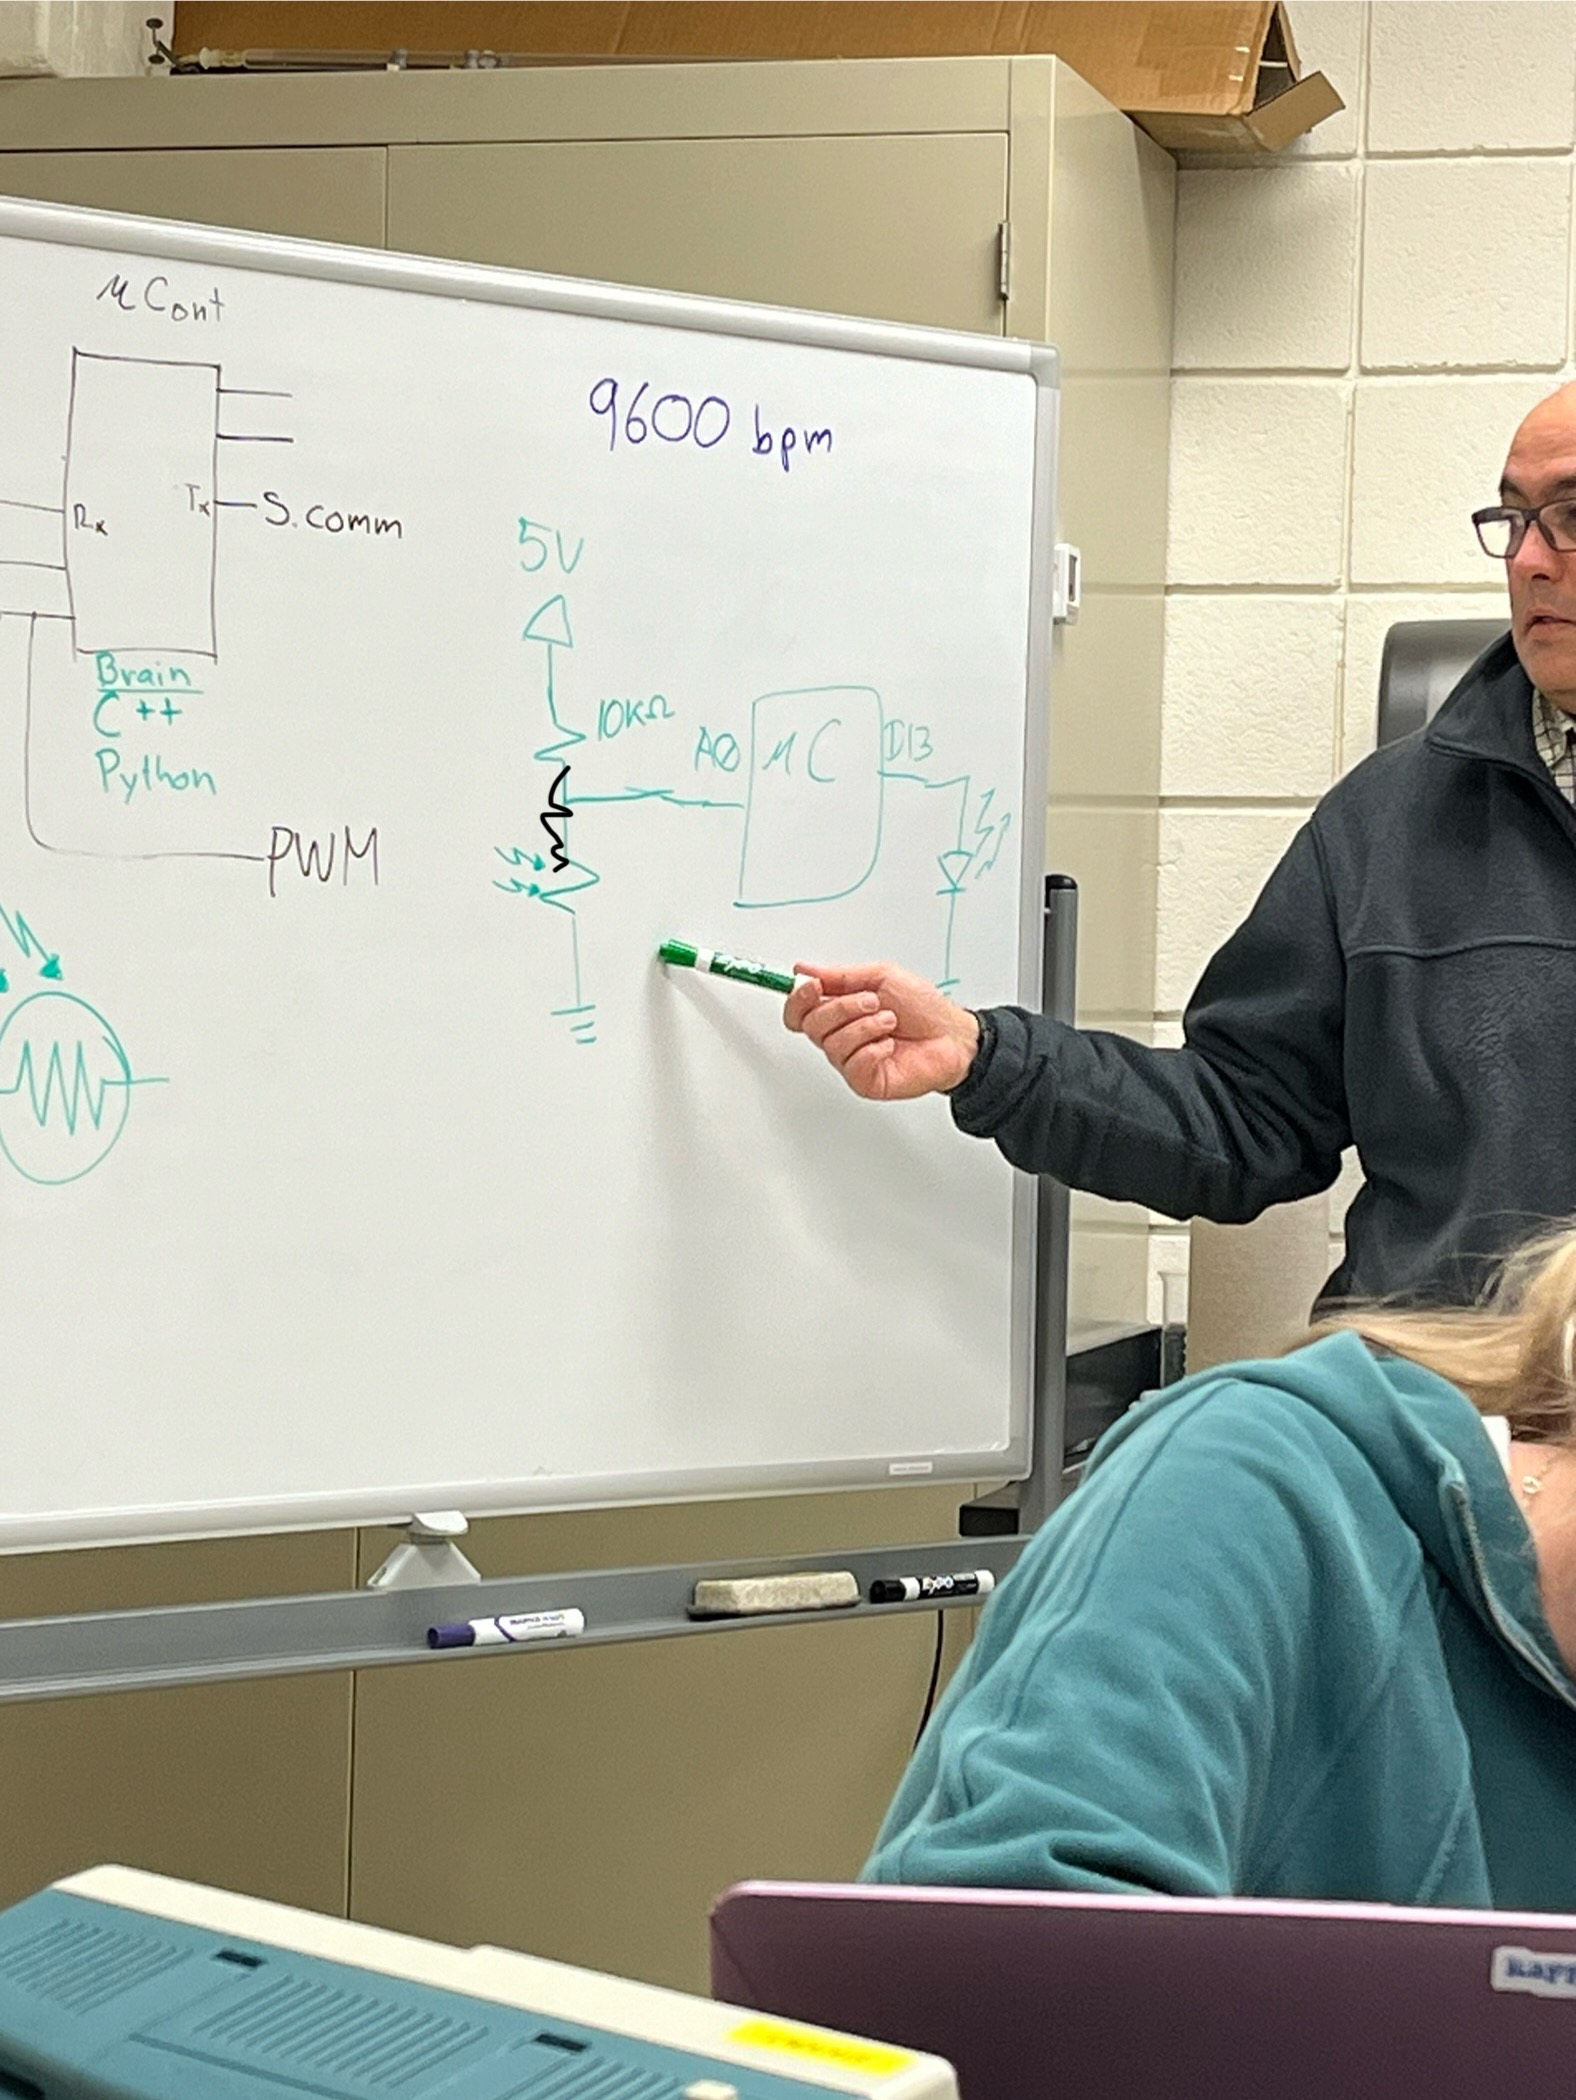 μCont
Rx
Tx
S.comm
Brain
C++
Python
PWM
9600 bpm
5V
10KΩ
A0
μC
D13
EXPO